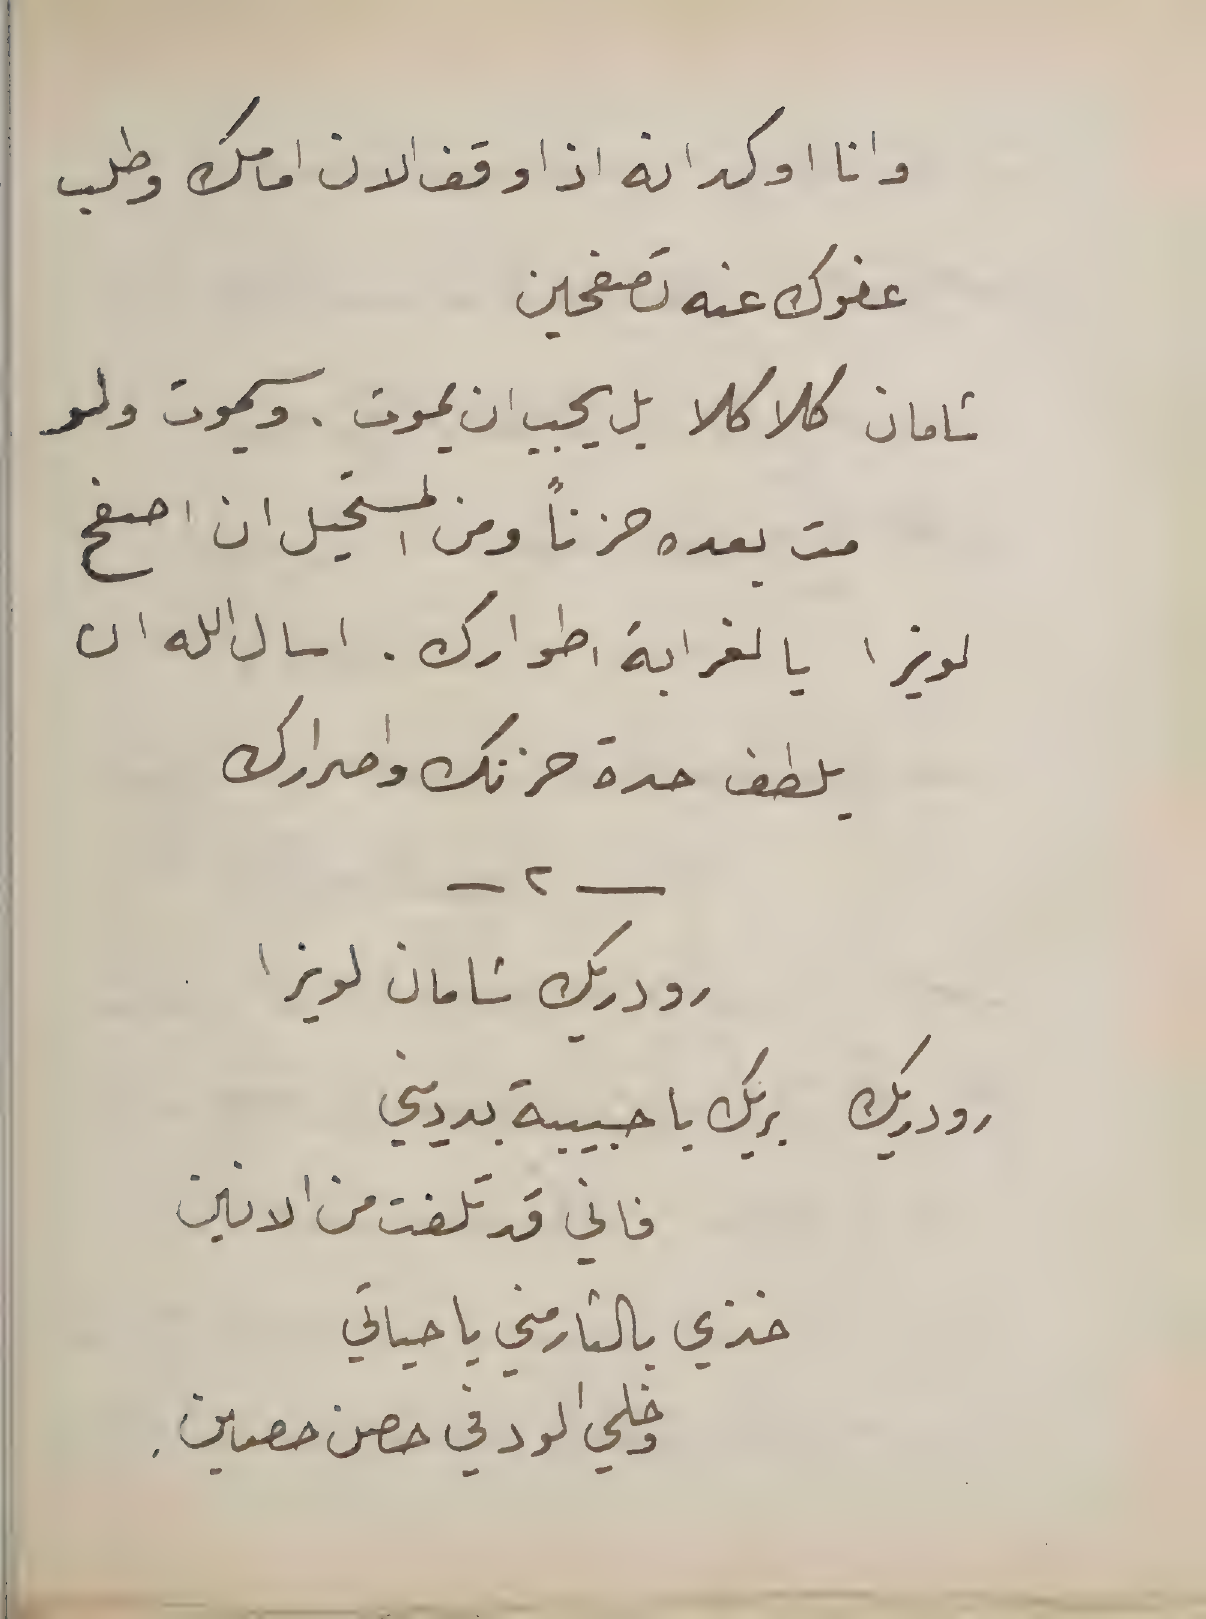 وانا اوكد انه اذا وقف الان امامك وطلب
عفوك عنه تصفحين
شامان كلا كلا بل يجب ان يموت . ويموت ولو
مت بعده حزناً ومن المستحيل ان اصفح
لويزا يا لغرابة اطوارك . اسال الله ان
يلطف حدة حزنك واصرارك
— ٢ —
رودريك شامان لويزا
رودريك بربك يا حبيبة بددي مني
فاني قد تلفت من الانين
خذي بالثار مني يا حياتي
وخلي الود في حصن حصين .